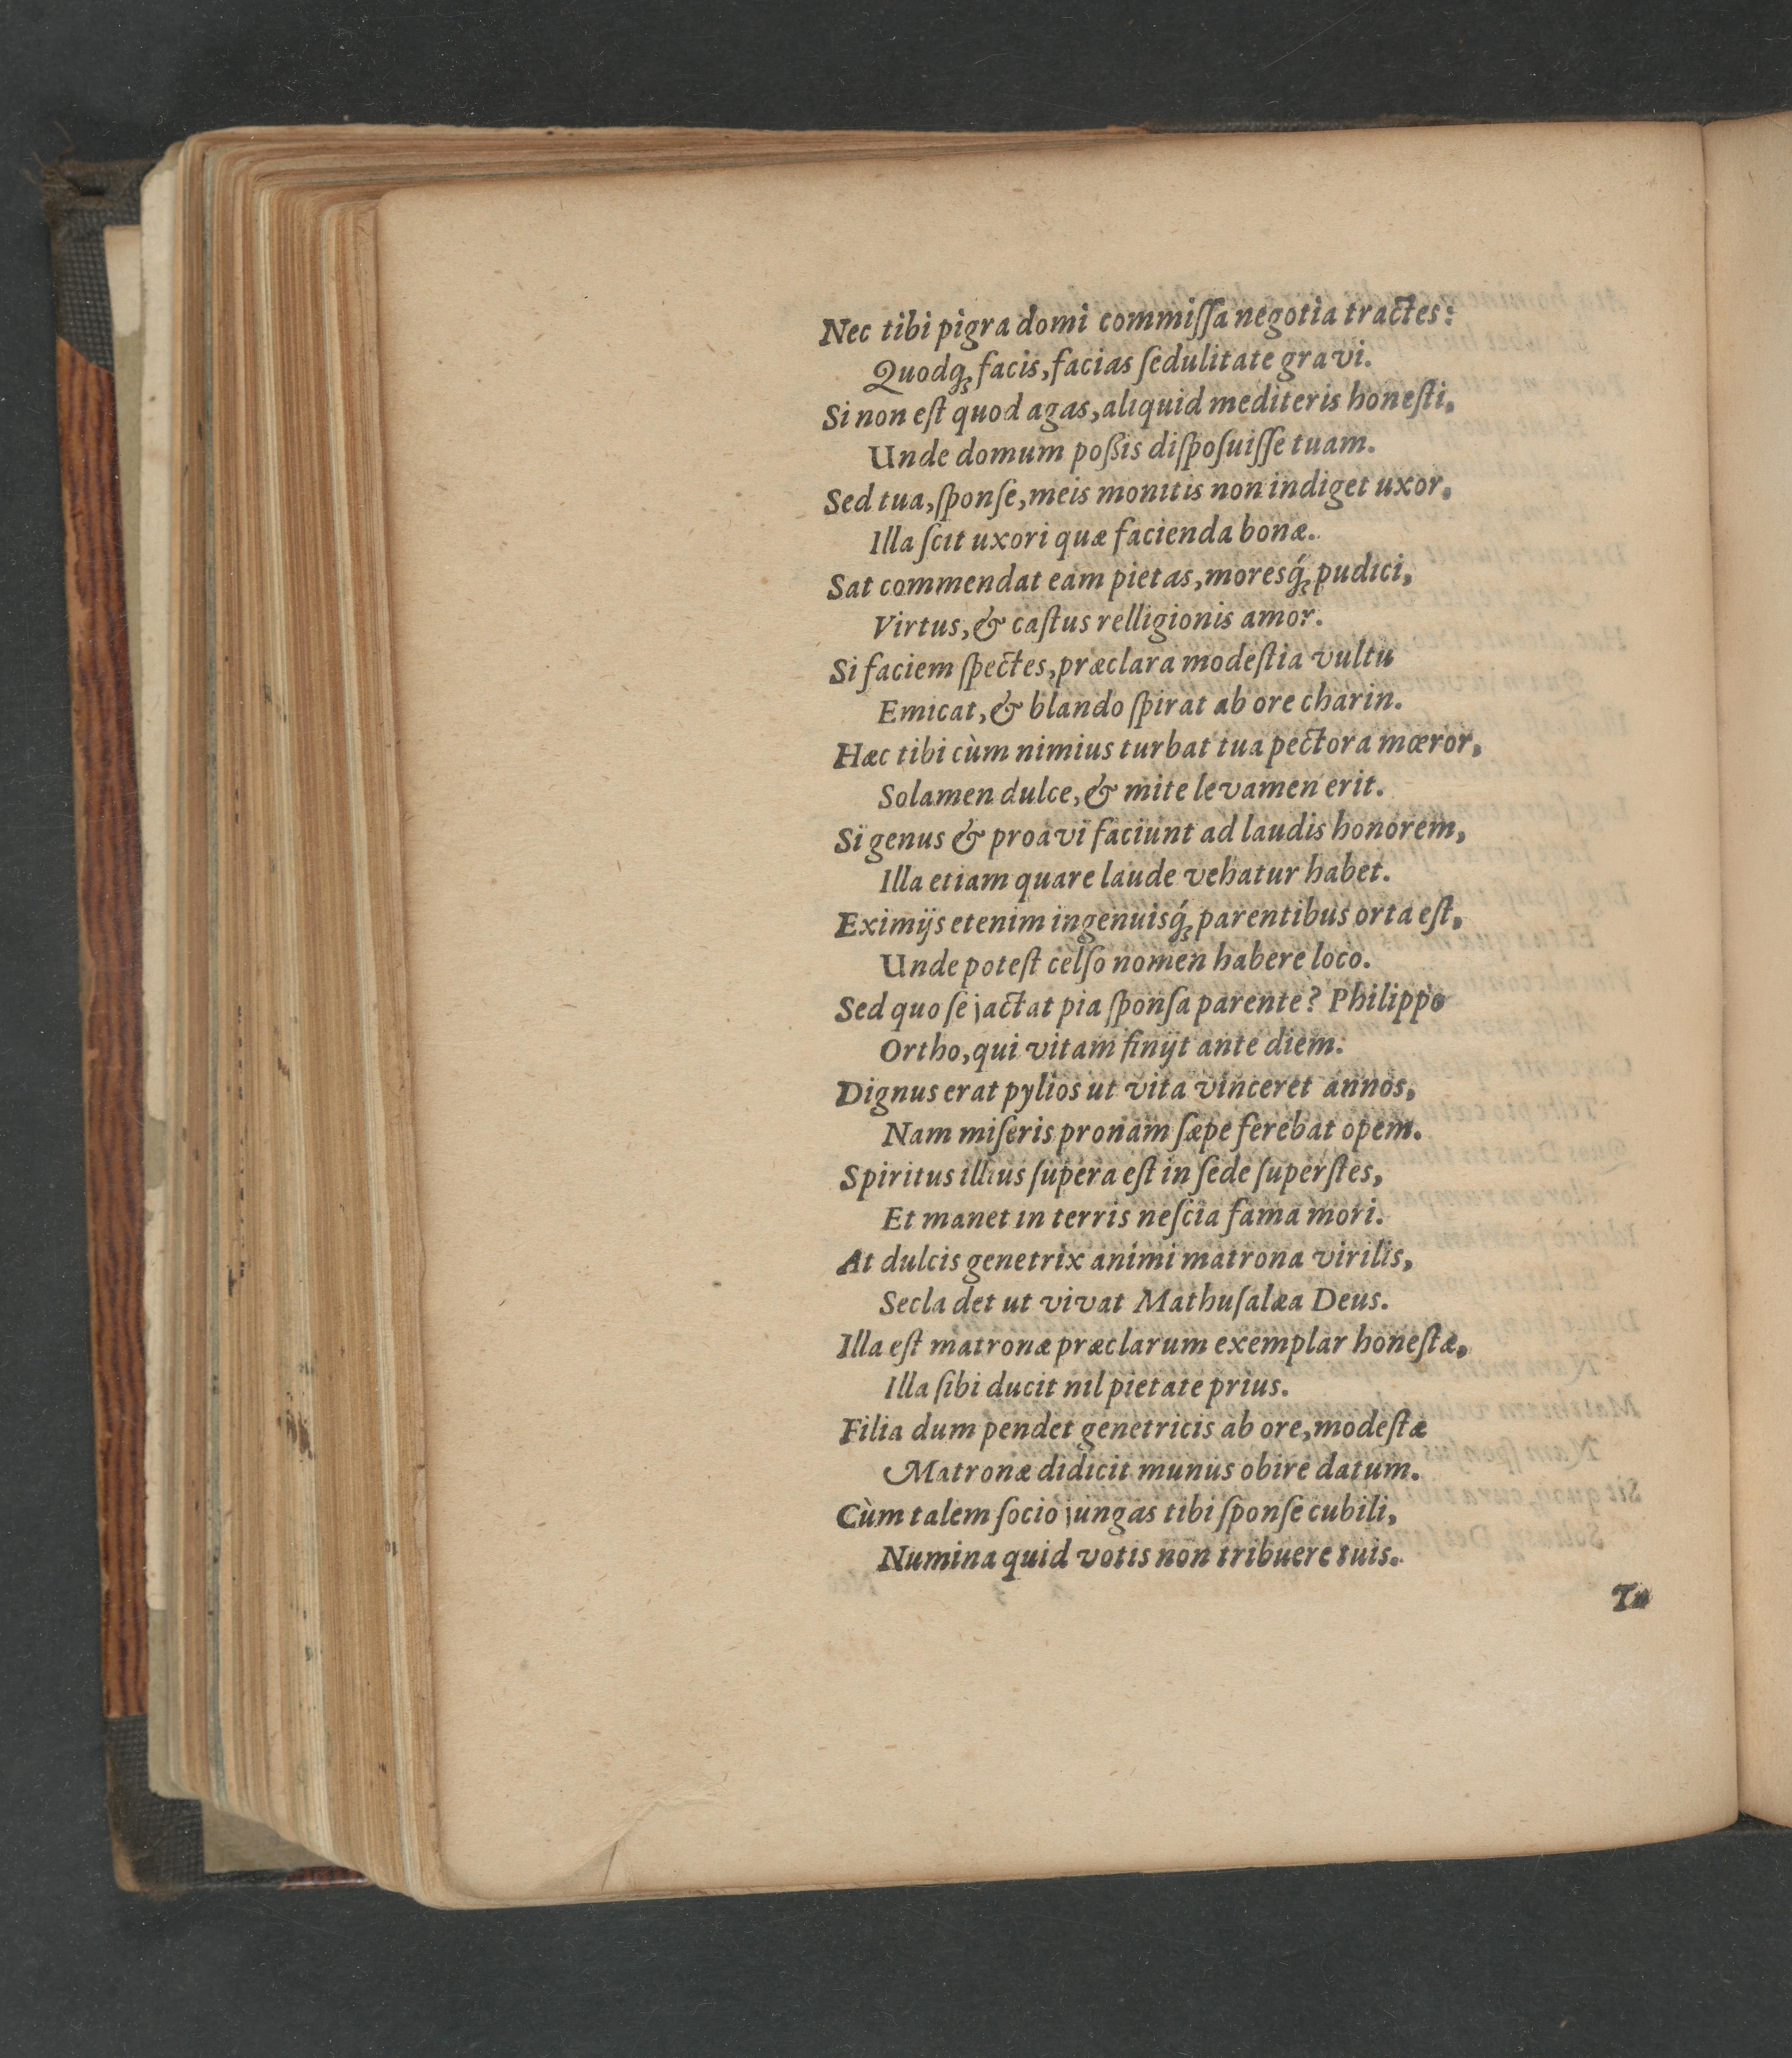 Nec tibi pigra domi commiſſa negotia tractes:
Quodq́ꝫ facis, facias ſedulitate gravi.
Si non eſt quod agas, aliquid mediteris honeſti,
Unde domum poßis diſpoſuiſſe tuam.
Sed tua, ſponſe, meis monitis non indiget uxor,
Illa ſcit uxori quæ facienda bonæ.
Sat commendat eam pietas, moresq́ꝫ pudici,
Virtus, & caſtus relligionis amor.
Si faciem ſpectes, præclara modeſtia vultu
Emicat, & blando ſpirat ab ore charin.
Hæc tibi cùm nimius turbat tua pectora mœror,
Solamen dulce, & mite levamen erit.
Si genus & proavi faciunt ad laudis honorem,
Illa etiam quare laude vehatur habet.
Eximijs etenim ingenuisq́ꝫ parentibus orta eſt,
Unde poteſt celſo nomen habere loco.
Sed quo ſe jactat pia ſponſa parente? Philippo
Ortho, qui vitam finijt ante diem.
Dignus erat pylios ut vita vinceret annos,
Nam miſeris pronam ſæpe ferebat opem.
Spiritus illius ſupera eſt in ſede ſuperſtes,
Et manet in terris neſcia fama mori.
At dulcis genetrix animi matrona virilis,
Secla det ut vivat Mathuſalæa Deus.
Illa eſt matronæ præclarum exemplar honeſtæ,
Illa ſibi ducit nil pietate prius.
Filia dum pendet genetricis ab ore, modeſtæ
Matronæ didicit munus obire datum.
Cùm talem ſocio jungas tibi ſponſe cubili,
Numina quid votis non tribuere tuis.